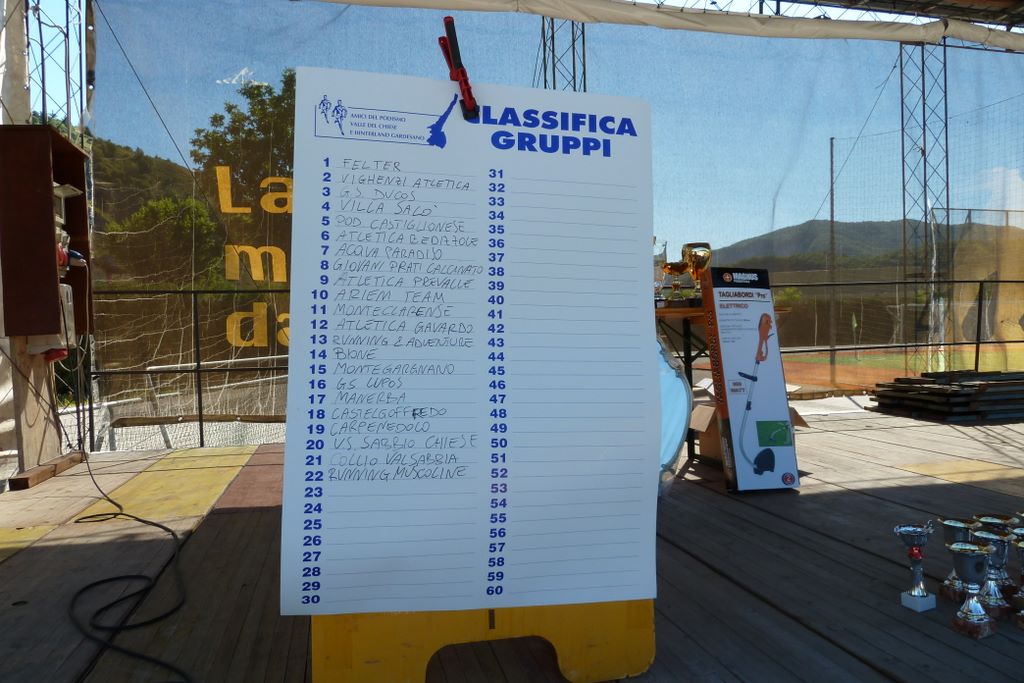 AMICI DEL PODISMO
VALLE DEL CHIESE
E HINTERLAND GARDESANO
CLASSIFICA
GRUPPI
1 FELTER
2 VIGHENZI ATLETICA
3 G.S. DUCOS
4 VILLA SALO'
5 POD. CASTIGLIONESE
6 ATLETICA BEDIZZOLE
7 ACQUA PARADISO
8 GIOVANI PRATI CALCINATO
9 ATLETICA PREVALLE
10 ARIEM TEAM
11 MONTECLARENSE
12 ATLETICA GAVARDO
13 RUNNING & ADVENTURE
14 BIONE
15 MONTEGARGNANO
16 G.S. LUPOS
17 MANERBA
18 CASTELGOFFREDO
19 CARPENEDOLO
20 U.S. SABBIO CHIESE
21 COLLIO VALSABBIA
22 RUNNING MUSCOLINE
23
24
25
26
27
28
29
30
31
32
33
34
35
36
37
38
39
40
41
42
43
44
45
46
47
48
49
50
51
52
53
54
55
56
57
58
59
60
La
m
da
MAGNUS
TAGLIABORDI "Pro"
ELETTRICO